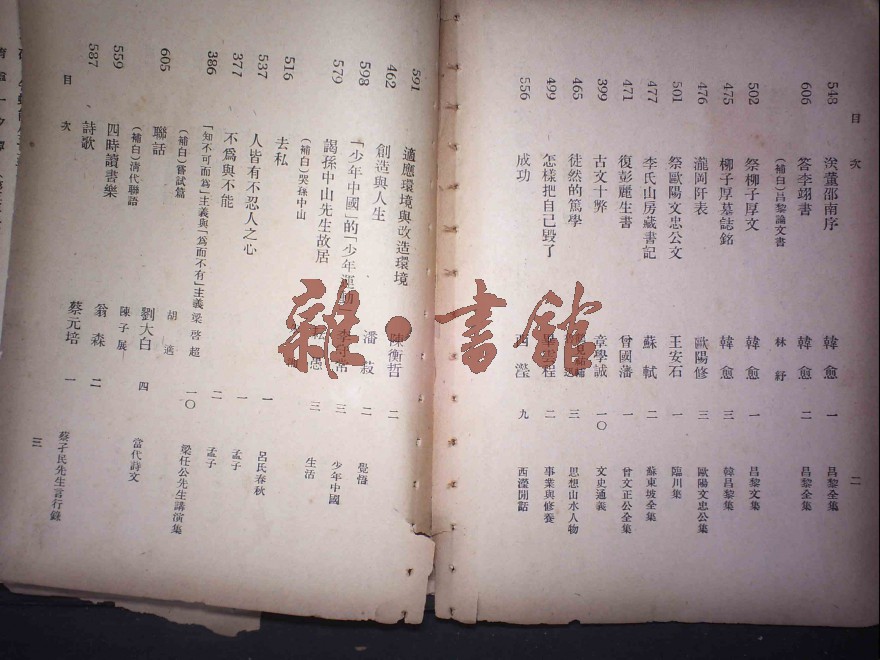 目次
二
548 送董邵南序 韓愈 一 昌黎全集
606 答李翊書 韓愈 二 昌黎全集
(補白)呂黎論文書 林紓
502 祭柳子厚文 韓愈 一 昌黎文集
475 柳子厚墓誌銘 韓愈 三 韓昌黎集
476 瀧岡阡表 歐陽修 三 歐陽文忠公集
501 祭歐陽文忠公文 王安石 一 臨川集
477 李氏山房藏書記 蘇軾 二 蘇東坡全集
471 復彭麗生書 曾國藩 一 曾文正公全集
399 古文十弊 章學誠 一〇 文史通義
465 徒然的篤學 三 思想山水人物
499 怎樣把自己毀了 二 事業與修養
556 成功 西瀅 九 西瀅閒話
591 適應環境與改造環境 陳衡哲 二
462 創造與人生 潘菽 二 覺悟
598 「少年中國」的「少年運動」 三 少年中國
579 謁孫中山先生故居 三 生活
(補白)哭孫中山
516 去私 一 呂氏春秋
537 人皆有不忍人之心 一 孟子
377 不爲與不能 二 孟子
386 「知不可而爲」主義與「爲而不有」主義 梁啓超 一〇 梁任公先生講演集
(補白)嘗試篇 胡適
605 聯話 劉大白 四 當代詩文
(補白)清代聯語 陳子展
559 四時讀書樂 翁森 二
587 詩歌 蔡元培 一 蔡孑民先生言行錄
目次
三
雜·書館